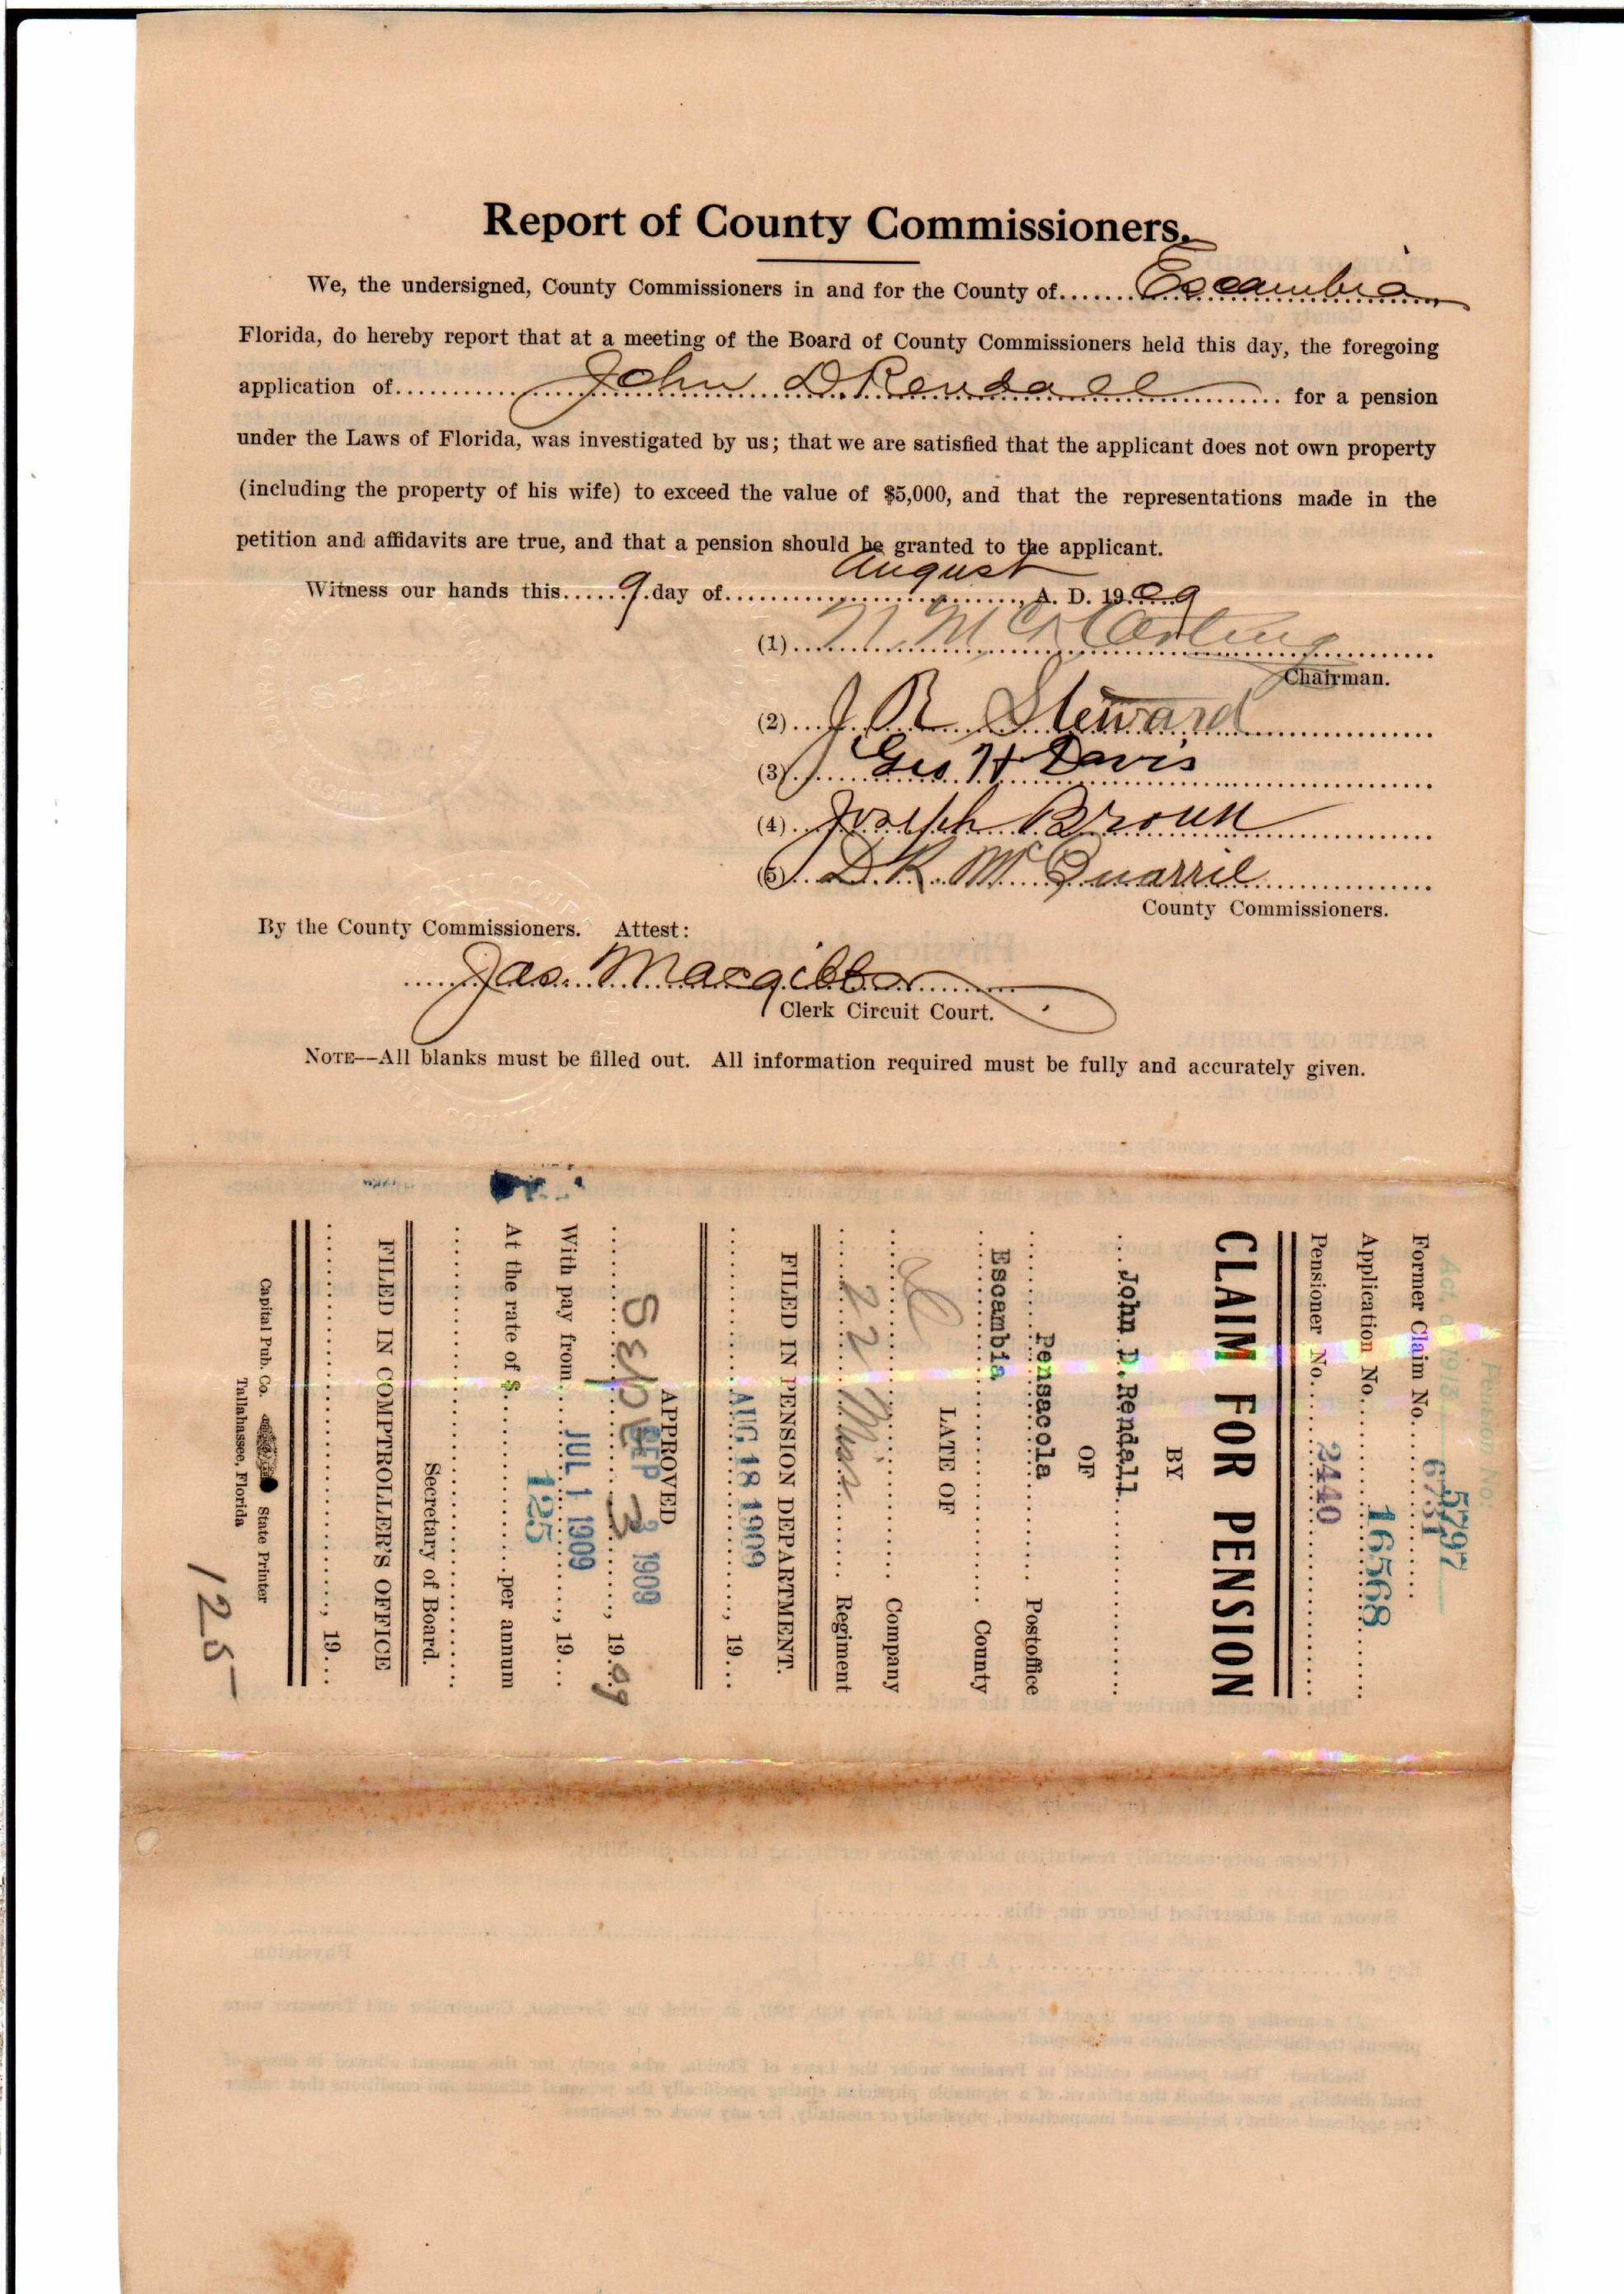 Report of County Commissioners.
We, the undersigned, County Commissioners in and for the County of Escambia,
Florida, do hereby report that at a meeting of the Board of County Commissioners held this day, the foregoing
application of John D Rendall for a pension
under the Laws of Florida, was investigated by us; that we are satisfied that the applicant does not own property
(including the property of his wife) to exceed the value of $5,000, and that the representations made in the
petition and affidavits are true, and that a pension should be granted to the applicant.
Witness our hands this 9 day of August, A. D. 1909
(1)
Chairman.
(2) J R Steward
(3) Geo H Davis
(4) Joseph Broun
(5) D. K. McQuarrie
County Commissioners.
By the County Commissioners. Attest:
Jas. Macgibbon
Clerk Circuit Court.
NOTE—All blanks must be filled out. All information required must be fully and accurately given.
Act. of 1913
Pension No.
5797
Former Claim No. 6731
Application No. 16568
Pensioner No. 2440
CLAIM FOR PENSION
BY
John D. Rendall
OF
Pensacola Postoffice
Escambia County
LATE OF
Company
22 Miss Regiment
FILED IN PENSION DEPARTMENT.
AUG 18 1909, 19
APPROVED
Sept 3 SEP 3 1909, 1909
With pay from JUL 1 1909, 19
At the rate of $ 125 per annum
Secretary of Board.
FILED IN COMPTROLLER'S OFFICE
, 19
Capital Pub. Co. State Printer
Tallahassee, Florida
125-